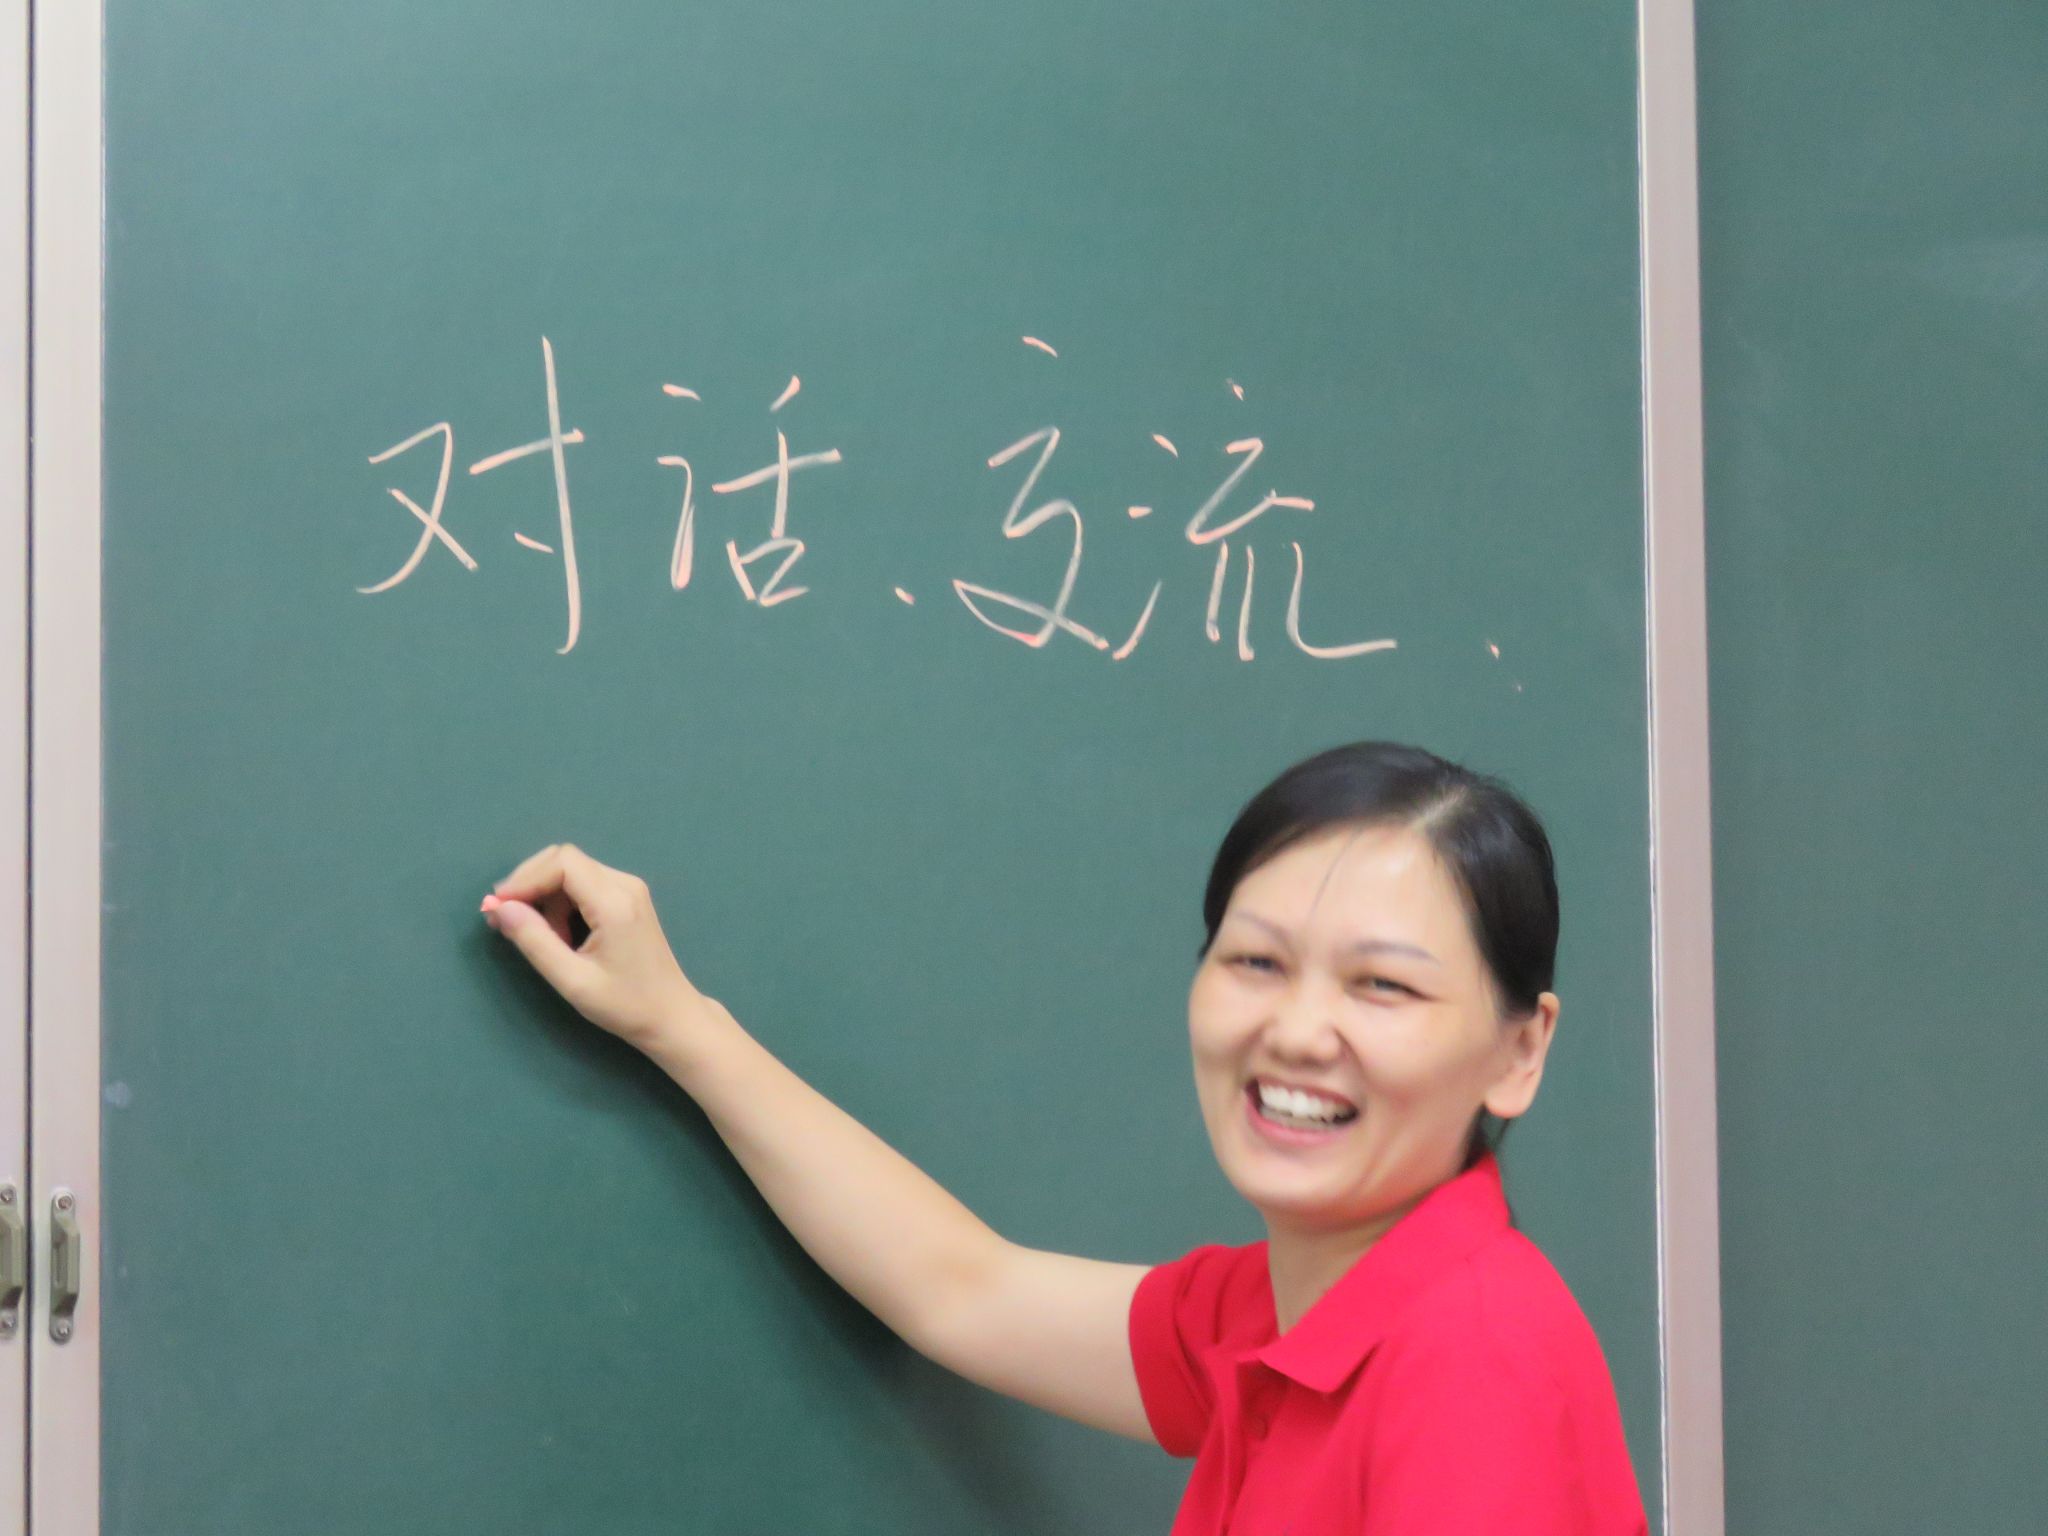 对话、交流、